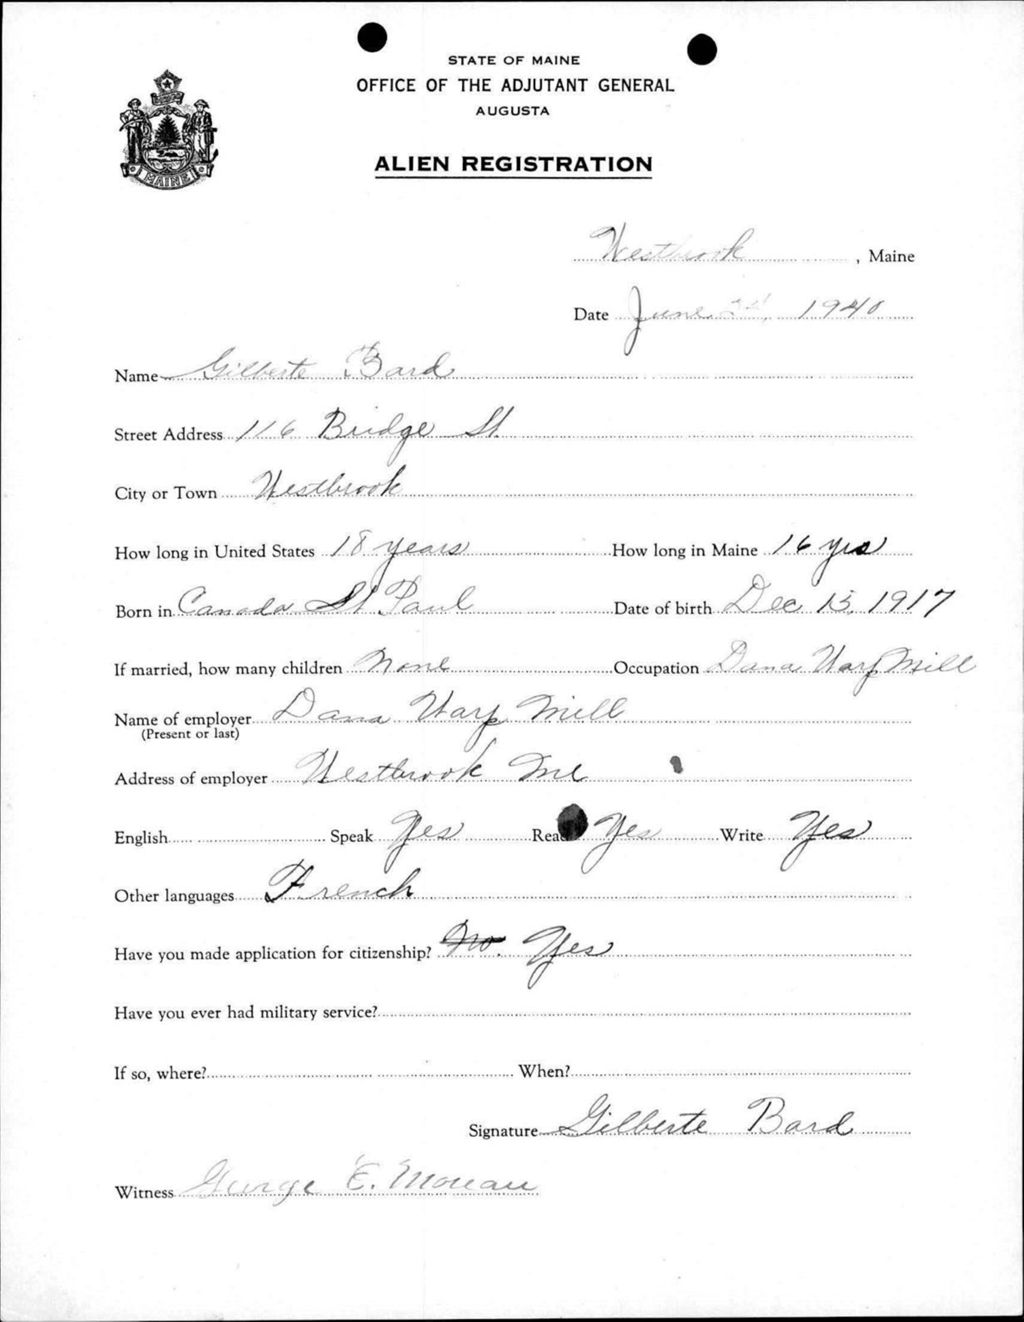 STATE OF MAINE
OFFICE OF THE ADJUTANT GENERAL
AUGUSTA
ALIEN REGISTRATION
MAINE
Westbrook, Maine
Date June 24, 1940
Name Gilberte Bard
Street Address 116 Bridge St.
City or Town Westbrook
How long in United States 18 years How long in Maine 16 yrs
Born in Canada St Paul Date of birth Dec 13, 1917
If married, how many children None Occupation Dana Warp Mill
Name of employer Dana Warp Mill
(Present or last)
Address of employer Westbrook Me
English Speak Yes Read Yes Write Yes
Other languages French
Have you made application for citizenship? No. Yes
Have you ever had military service?
If so, where? When?
Signature Gilberte Bard
Witness George E.